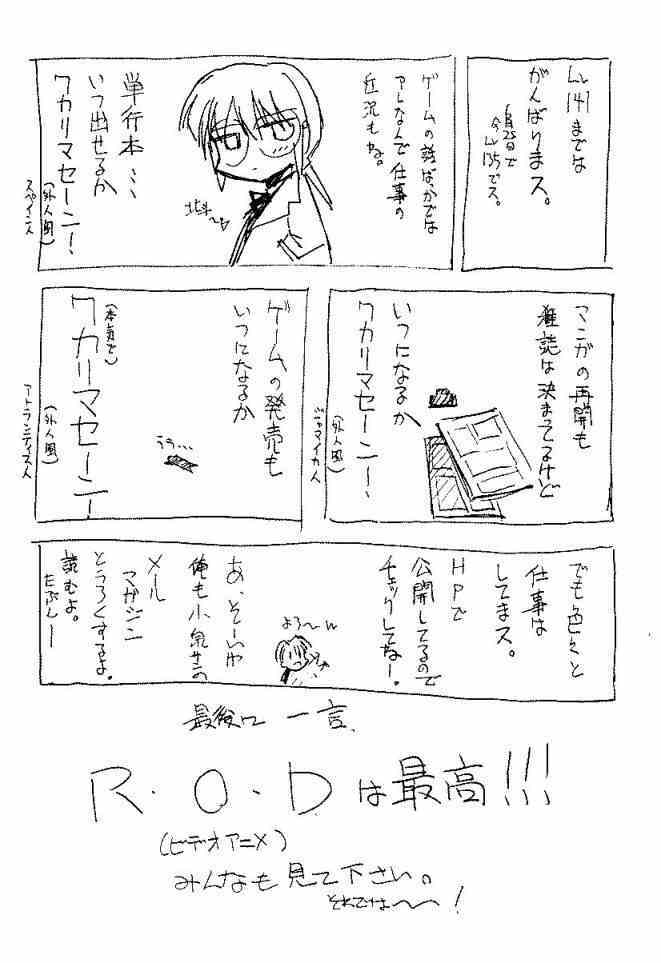 Lv141までは
がんばりまス。
6月25日で
今Lv135でス。
ゲームの話ばっかでは
アレなんで仕事の
近況もね。
単行本…
いつ出せるか
ワカリマセーン!
(外人風)
スペイン人
マンガの再開も
雑誌は決まってるけど
いつになるか
ワカリマセーン!
(外人風)
ジャマイカ人
ゲームの発売も
いつになるか
(本気で)
ワカリマセーン!
(外人風)
アトランティス人
でも色々と
仕事は
してまス。
HPで
公開してるので
チェックしてねー!
よろ〜ん
あ、そーいや
俺も小泉サンの
メール
マガジン
とうろくするよ。
読むよ。
たぶんー
最後に一言、
R・O・Dは最高!!!
(ビデオアニメ)
みんなも見て下さい。
それでは〜〜!